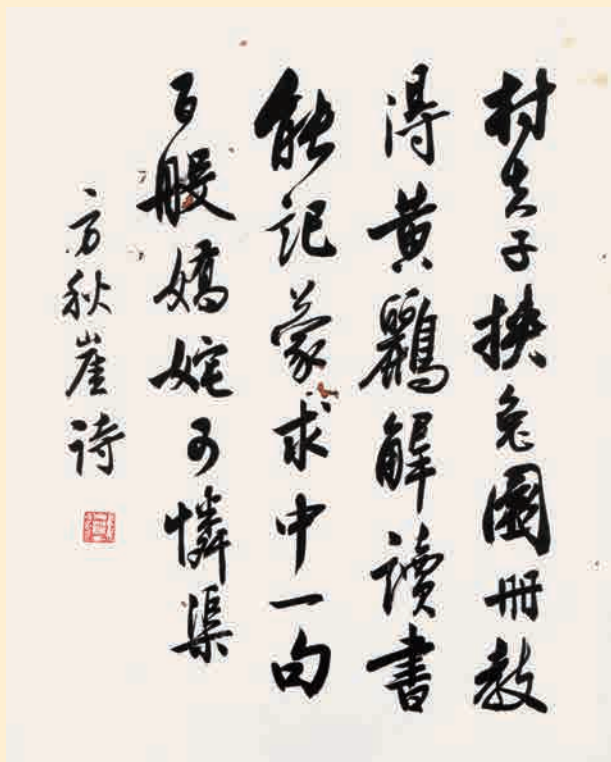 村夫子挟兔園冊教
得黄鸝解讀書
能記蒙求中一句
百般嬌姹可憐渠
方秋崖诗